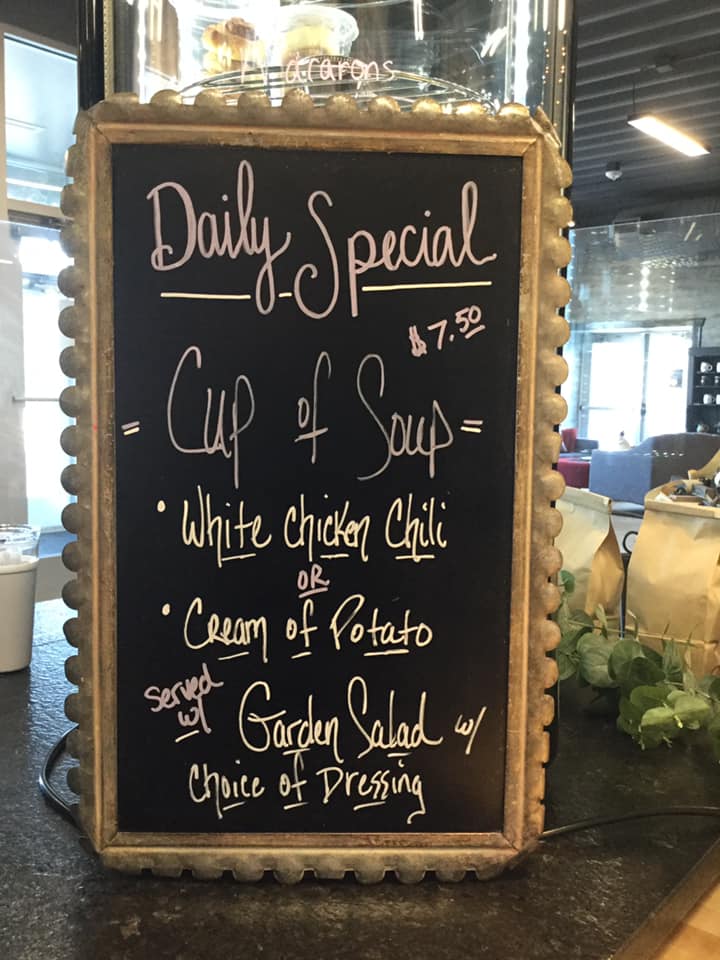 Macarons
Daily Special
$7.50
Cup of Soup
• White Chicken Chili
OR
• Cream of Potato
Served
w/
Garden Salad w/
Choice of Dressing